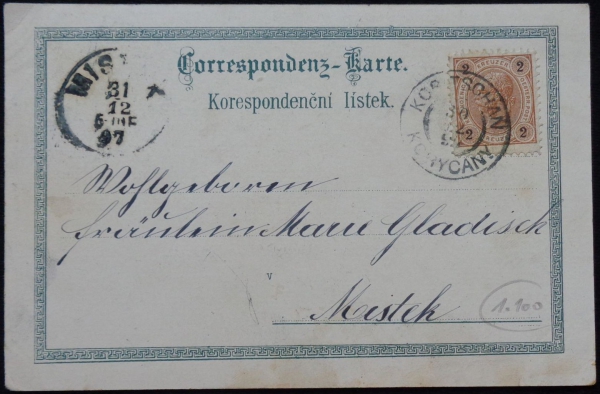 Correspondenz-Karte.
Korespondenční lístek.
MIST
31
12
97
2 KREUZER 2
2 KREUZER 2
KORITSCHAN
30
KORYCANY
Wohlgeboren
Fräulein Marie Gladisch
v
Mistek
1.100